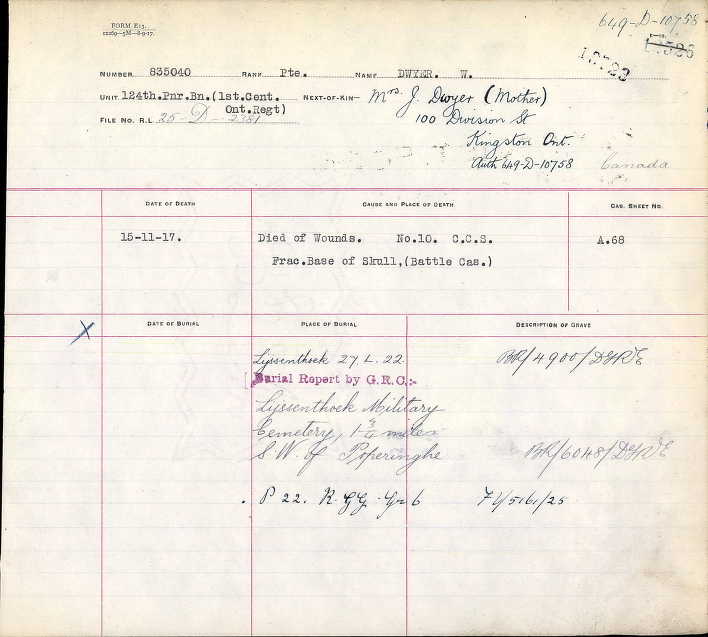 FORM E13.
649-D-10758
NUMBER 835040 RANK Pte. NAME DWYER. W.
UNIT 124th.Pnr.Bn.(1st.Cent. Ont.Regt) NEXT-OF-KIN— Mrs. J. Dwyer (Mother)
100 Division St
FILE NO. R.L 25-D-2381
Kingston Ont.
Auth 649-D-10758 Canada
DATE OF DEATH CAUSE AND PLACE OF DEATH CAS. SHEET NO.
15-11-17. Died of Wounds. No.10. C.C.S. A.68
Frac.Base of Skull,(Battle Cas.)
X DATE OF BURIAL PLACE OF BURIAL DESCRIPTION OF GRAVE
Lyssenthoek 27 L. 22. BR/4900/DGRE
Burial Report by G.R.C:-
Lyssenthoek Military
Cemetery, 1 3/4 miles
S.W. of Poperinghe BR/6048/DGRE
P 22. R. GG. Gr 6